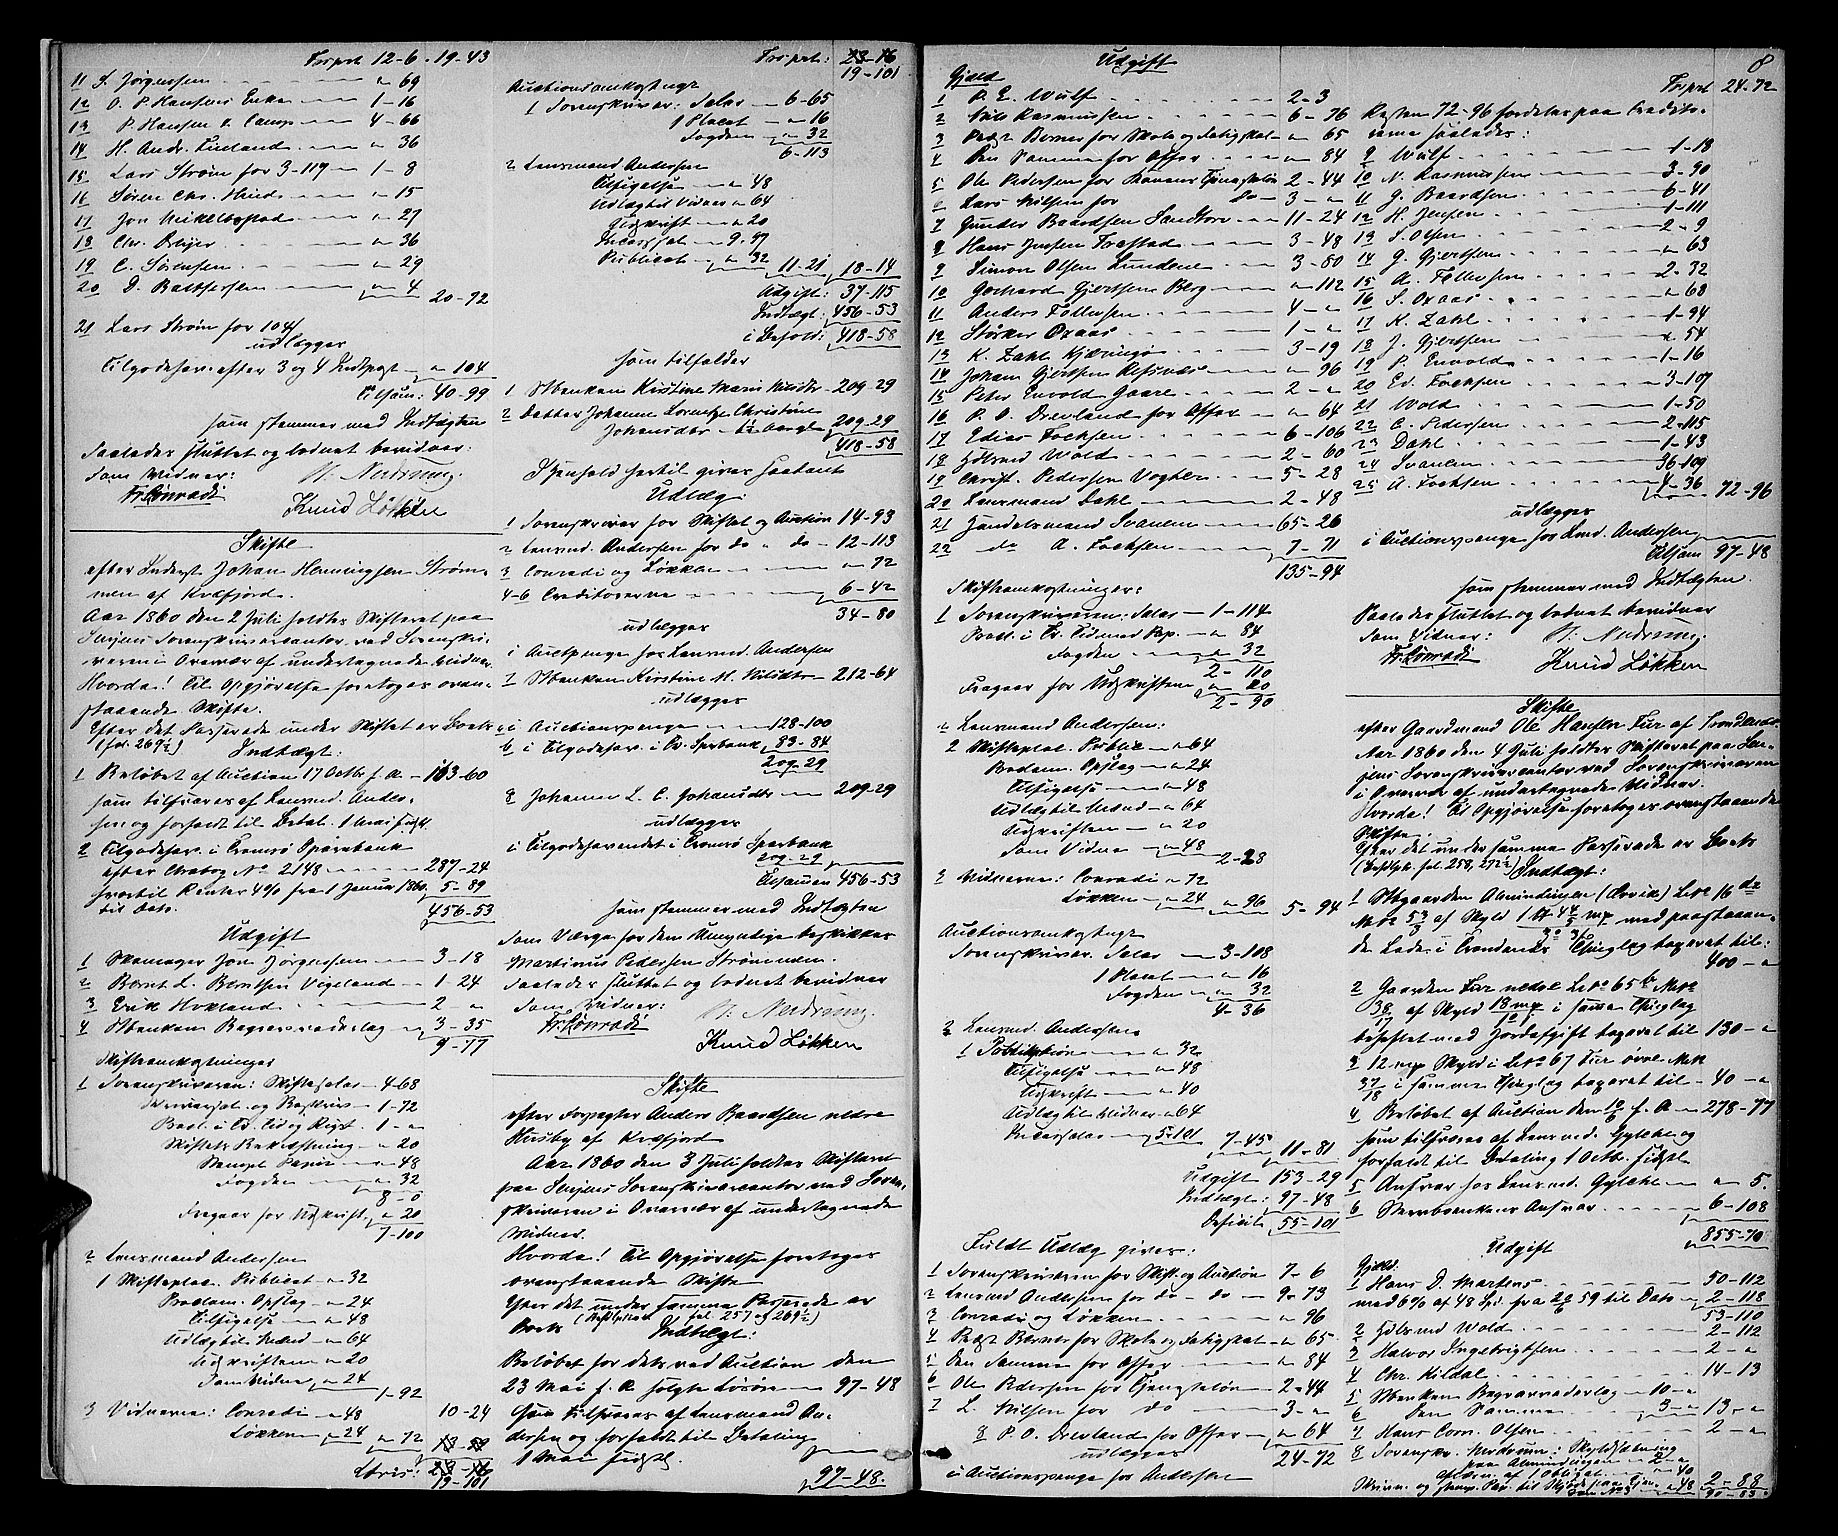 Trsprt 12-6. 19-43
11 S. Jörgensen — " 69
12 O. P. Hansens Enke — 1-16
13 P. Hansen & Comp — 4-66
14 H. Andr. Luuland — " 36
15 Lars Strøm for 3-119 — 1-8
16 Sören Chr. Hind — " 15
17 Jon Mikkelbostad — " 27
18 Chr. Dreyer — " 36
19 C. Sörensen — " 29
20 D. Balthersen — " 4 20-72
21 Lars Strøm for 104
udlægges
Tilgodehav. efter 3 og 4 Indtpost — " 104
Tilsam: 40-99
som stemmer med Indtægten
Saaledes sluttet og lodnet bevidner
Som Vidner: N. Nedrum.
Fr. Conradi
Knud Løkken
Skifte
efter Inderst Johan Henningsen Strøm-
men af Kvæfjord.
Aar 1860 den 2 Juli holdtes Skifteret paa
Senjens Sorenskrivercontor ved Sorenskri-
veren i Overvær af undertegnede Vidner.
Hvorda! Til Opgjørelse foretoges oven-
staaende Skifte.
Efter det Passerede under Skiftet er Boets
(fol. 269½) Indtægt:
1 Beløbet af Auction 17 Octbr f. A. — 163-60
som tilsvares af Lensmd. Ander-
sen og forfaldt til Betal. 1 Mai sidstl.
2 Tilgodehav. i Tromsö Sparebank
efter Contrabog No 2148 — 287-24
hvortil Renter 4% fra 1 Januar 1860 5-89
til Dato.
456-53
Udgift
1 Skomager Jon Jörgensen — 3-18
2 Bernt L. Berntsen Vigeland — 1-24
3 Erik Hokland — 2-"
4 Stbenkens Begravelsesudlæg — 3-35
9-77
Skifteomkostninger
1 Sorenskriveren: Skiftesalær — 4-68
Skifters Bekræftning — " 20
Stempl. Papir — " 48
Fogden — " 32
8-0
Fragaar for Udskrift " 20
7-100
2 Lensmand Andersen
1 Skifteplac. Publicat — " 32
Proclam. Opslag — " 24
Tilsigelse — " 48
Udlagt til Mænd — " 64
Udskriften — " 20
Som Vidne — " 24
1-92
3 Vidnerne: Conradi — " 48
Løkken " 24 " 72
10-24
Latris:
19-101
Trsprt: 23-16
19-101
Auctionsomkostninger
1 Sorenskriver: Salær — 6-65
1 Placat — " 16
Fogden — " 32
6-113
2 Lensmand Andersen
Tilsigelse — " 48
Udlagt til Vidner " 64
Udskrift — " 20
Incassosal — 9-97
Publicat — " 32
11-21 18-14
Udgift: 37-115
Indtægt: 456-53
i Behold: 418-58
som tilfalder
1 Stbenken Kirstine Marie Nilsdtr — 209-29
2 Datter Johanne Lorentze Christine
Johansdtr 209-29
418-58
I Henhold hertil gives saadant
Udlæg:
1 Sorenskriver for Skiftet og Auction 14-93
2 Lensmd. Andersen for do " do — 12-113
3 Conradi og Løkken — " 72
4-6 Creditorerne — 6-42
34-80
udlægges
i Auctpenge hos Lensmd. Andersen
7 Stbenken Kirstine M. Nilsdtr — 212-64
udlægges
a, i Auctionspenge — 128-100
b, i Tilgodehav. i Tr. Sparbank 83-84
209-29
8 Johanne L. C. Johansdtr — 209-29
udlægges
i Tilgodehavendet i Tromsö Sparbank
209-29
Tilsamen 456-53
som stemmer med Indtægten
Som Værge for den Umyndige beskikkes
Martinus Pedersen Strømmen.
Saaledes sluttet og lodnet bevidner
Som Vidner: N. Nedrum.
Fr. Conradi
Knud Løkken
Skifte
efter Forpagter Anders Baardsen nedre
Husby af Kvæfjord
Aar 1860 den 3 Juli holdtes Skifteret
paa Senjens Sorenskrivercontor ved Soren-
skriveren i Overvær af undertegnede
Vidner.
Hvorda! Til Opgjørelse foretoges
ovenstaaende Skifte
Efter det under samme Passerede er
Boets (Skifteprot. fol. 257 og 269½)
Indtægt:
Beløbet for det ved Auction den
23 Mai f. A. solgte Løsöre — 97-48
som tilsvares af Lensmand An-
dersen og forfaldt til Betaling
1 Mai sidstl.
97-48.
8
Udgift
Gjæld
1 P. E. Wulf — 2-3
2 Nils Rasmussen — 6-76
3 Præst Bernes for Skole og Fatigskat — " 65
4 Den Samme for Offer — " 84
5 Ole Pedersen for Konens Tjenesteløn 2-44
6 Lars Nilsen for do — 3-"
7 Gunder Baardsen Sandtorv — 11-24
8 Hans Jensen Trastad — 3-48
9 Simon Olsen Lundene — 3-80
10 Gerhard Gjertsen Berg — " 112
11 Anders Tollevsen — 4-"
12 Størker Oxaas — 1-"
13 K. Zahl Kjæringö — 3-19
14 Johan Gjertsen Refsnæs — " 96
15 Peter Envold Gaare — 2-"
16 P. O. Drevland for Offer — " 64
17 Edias Fochsen — 6-106
18 Wold — 2-60
19 Christ. Pedersen Voghen — 5-28
20 Lensmand Dahl — 2-48
21 Handelsmand Svanem — 65-26
22 do A. Fochsen — 7-71
135-94
Skifteomkostninger:
1 Sorenskriveren: Salær — 1-114
Fogden — " 32
2-110
Fragaar for Udskriften " 20
2-90
2 Lensmand Andersen:
2 Skifteplac. Public — " 64
Proclam. Opslag — " 24
Tilsigelse — " 48
Udlagt til Mænd — " 64
Udskriften — " 20
Som Vidne — " 48
2-28
3 Vidnerne: Conradi " 72
Løkken " 24 " 96
5-94
Auctionsomkostninger
Sorenskriver Salær — 3-108
1 Placat — " 16
Fogden — " 32
4-36
2 Lensmd. Andersen
1 Publikation — " 32
Tilsigelse — " 48
Udskrift — " 40
Udlagt til Vidner " 64
Incassosalær — 5-101
7-45 11-81
Udgift 153-29
Indtægt: 97-48
Deficit 55-101
Fuldt Udlæg gives:
1 Sorenskriveren for Skift. og Auction 7-6
2 Lensmd Andersen for do — do — 9-73
3 Conradi og Løkken — " 96
4 Præst Bernes for Skole og Fatigskat — " 65
5 Den Samme for Offer — " 84
6 Ole Pedersen for Tjenesteløn — 2-44
7 L. Nilsen for do — 3-"
8 P. O. Drevland for Offer — " 64
udlægges 24-72
i Auctionspenge hos Andersen
Trsprt 24-72
Resten 72-96 fordeles paa Credito-
rerne saaledes:
9 Wulf — 1-18
10 N. Rasmussen — 3-90
11 G. Baardsen — 6-41
12 H. Jensen — 1-111
13 S. Olsen — 2-9
14 G. Gjertsen — " 63
15 A. Tollevsen — 2-32
16 S. Oxaas — " 68
17 K. Zahl — 1-94
18 J. Gjertsen — " 54
19 P. Envold — 1-16
20 Ed. Fochsen — 3-107
21 Wold — 1-50
22 C. Pedersen — 2-115
23 Dahl — 1-43
24 Svanem — 36-109
25 A. Fochsen — 4-36
72-96
udlægges
i Auctionspenge hos Lmd. Andersen
Tilsam 97-48
som stemmer med Indtægten.
Saaledes sluttet og lodnet bevidner
Som Vidner: N. Nedrum.
Fr. Conradi
Knud Løkken
Skifte
efter Gaardmand Ole Hansen Fur af Trondenæs
Aar 1860 den 4 Juli holdtes Skifteret paa Sen-
jens Sorenskrivercontor ved Sorenskriveren
i Overvær af undertegnede Vidner.
Hvorda! Til Opgjørelse foretoges ovenstaaende
Skifte.
Efter det under samme Passerede er Boets
(Skiftprt. fol. 258, 272½) Indtægt:
1 Stgaarden Almindingen (Ervik) Lbno 16 de
Mno 53/3 af Skyld 1 44/5 mp med paastaaen-
de Lade i Trondenæs Thinglag taxeret til:
400-"
2 Gaarden Fur nedre Lbno 65 Mno
38/17 af Skyld 18 mp i samme Thinglag
beheftet med Jordafgift taxeret til 130-"
3 12 mp Skyld i Lbno 67 Fur övre Mno
37/78 i samme Thinglag taxeret til — 40-"
4 Beløbet af Auction den 10/6 f. A — 278-77
som tilsvares af Lensmd. Gylche og
forfaldt til Betaling 1 Octb. sidstl.
5 Ansvar hos Lensmd. Gylche — " 5.
6 Sterboenkens Ansvar — 6-108
855-70
Udgift
Gjæld:
1 Hans D. Martens — 50-112
med 6% af 48 Spd. fra 20/6 59 til Dato 2-118
53-110
2 Wold — 2-112
3 Halvor Ingebrigtsen — 2-"
4 Chr. Kildal — 14-13
5 Stbenkens Begravelsesudlæg — 10-"
6 Den Samme — 3-" 13-"
7 Hans Corn. Olsen — 2-"
8 Sorenskr. Nedrum: Skyldsætning
paa Almindingen — 2-"
aflæsn. af 1 Obligat. — " 40
" 48 2-88
90-83